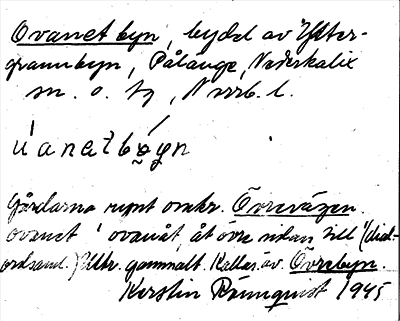 Ovanet byn, bydel av Ytter-
grannbyn, Pålänge, Nederkalix
sn. o. tg, Nrrb. l.
úanetbəyn
Gårdarna runt omkr. Övrevägen.
ovanet 'ovanåt, åt övre sidan till' (dial-
ordsaml.) Uttr. gammalt. Kallas äv. Övrebyn.
Kerstin Rönnqvist 1945